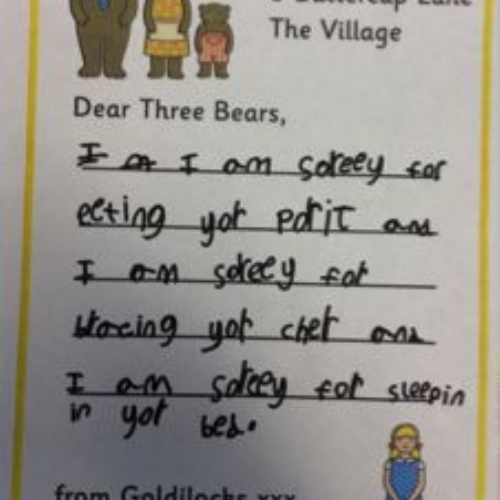 Lane
The Village
Dear Three Bears,
I am soreey for
eeting yor porit and
I am soreey for
bracing yor cher and
I am soreey for sleepin
in yor bed.
from Goldilocks xxx